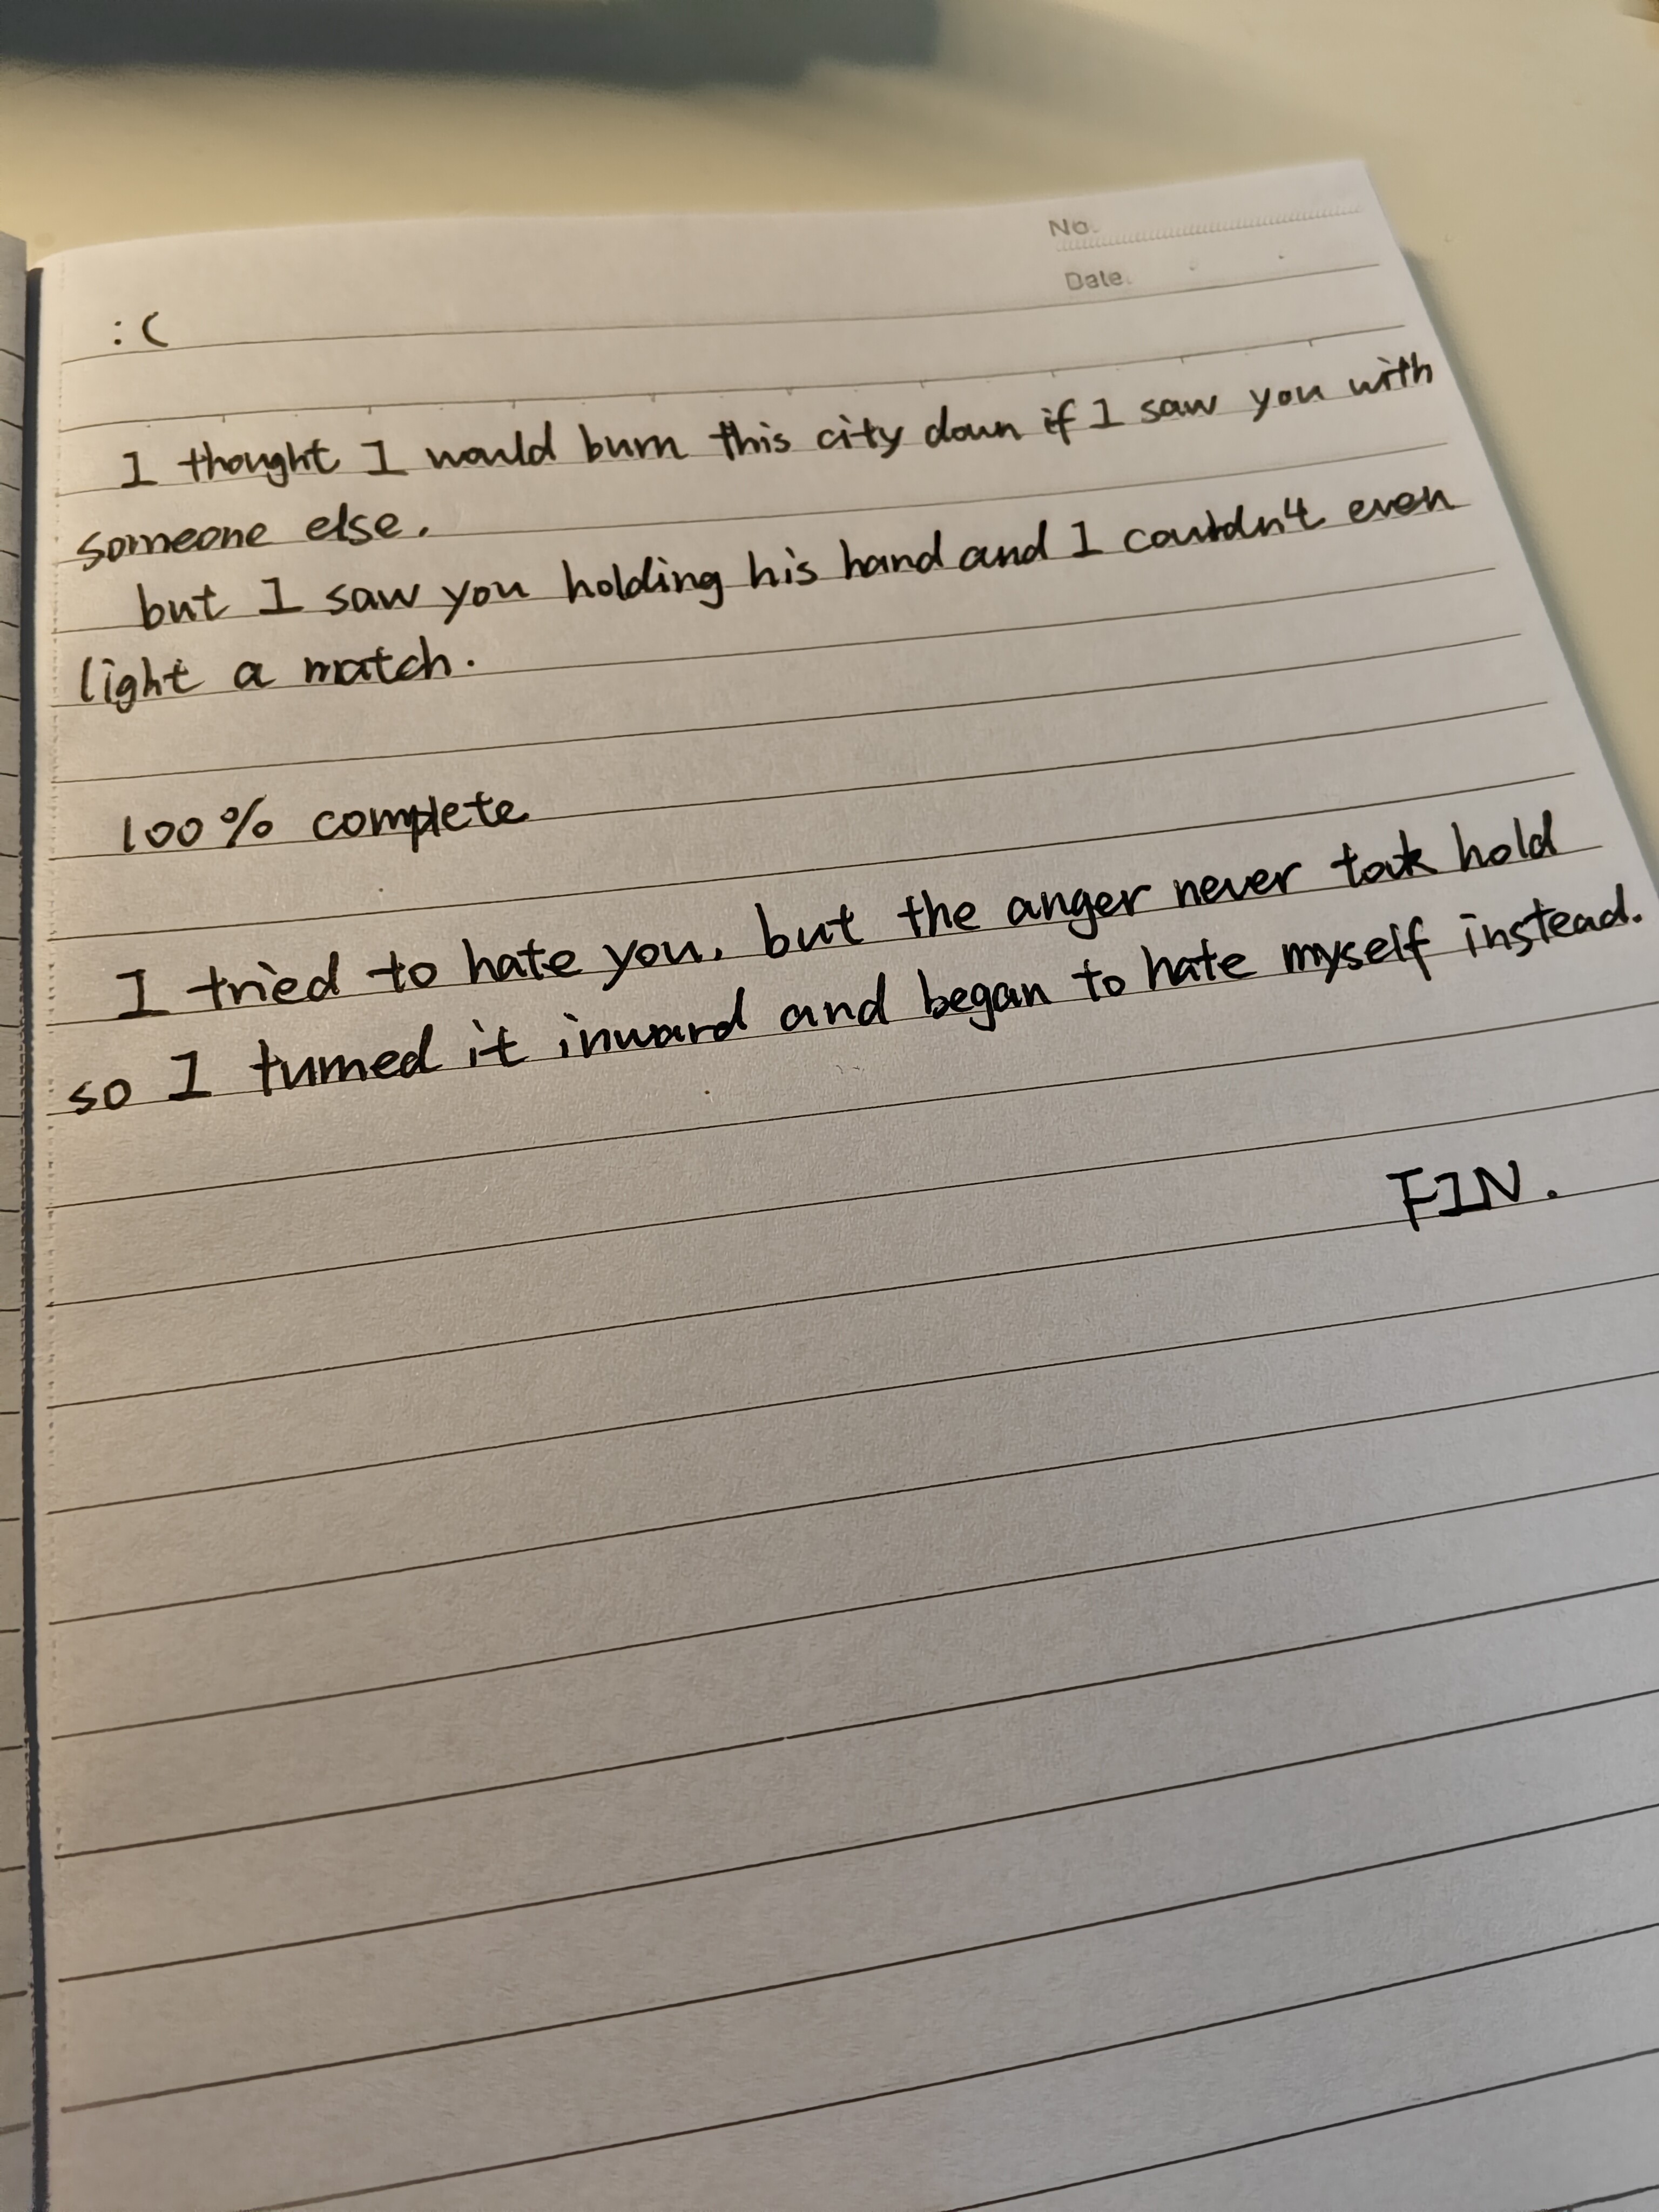 No.
Date.
:(
I thought I would burn this city down if I saw you with
someone else.
but I saw you holding his hand and I couldn't even
light a match.
100% complete
I tried to hate you, but the anger never took hold
so I turned it inward and began to hate myself instead.
FIN.